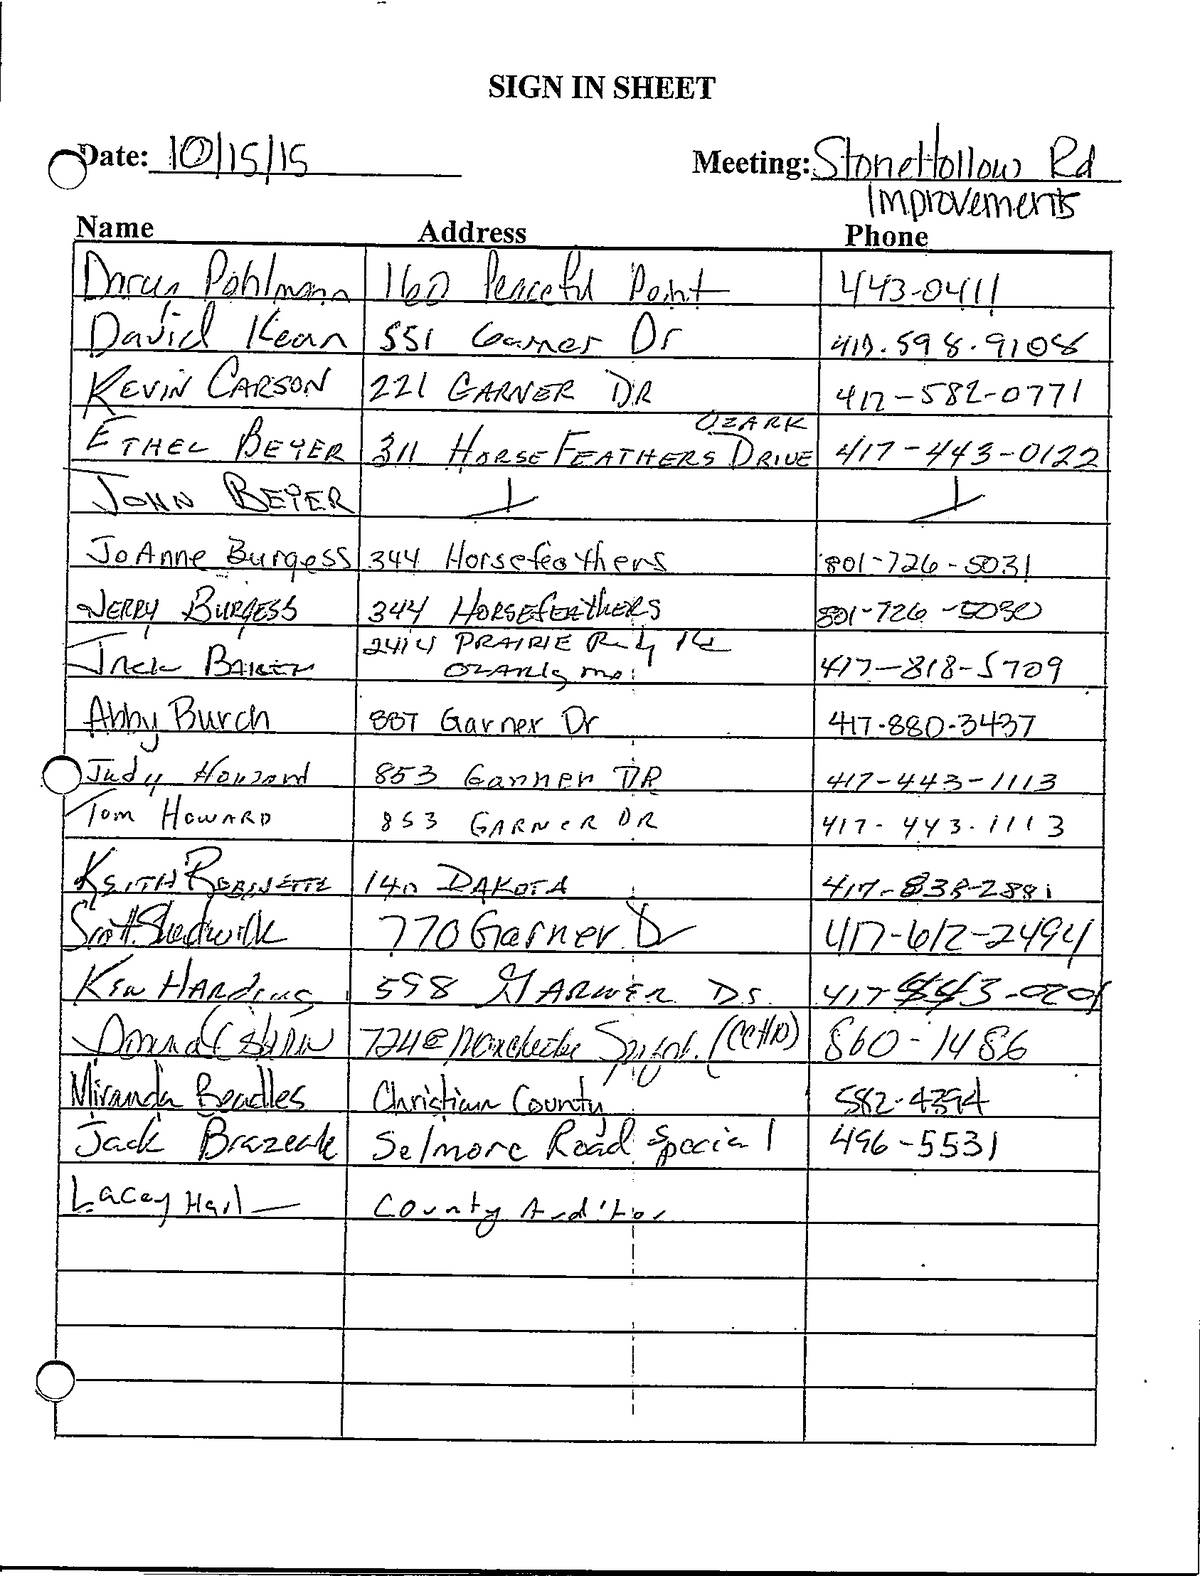 SIGN IN SHEET
Date: 10/15/15 Meeting: StoneHollow Rd
Improvements
Name Address Phone
Pohlmann 160 Peaceful Point 443-0411
David Kean 551 Garner Dr 417.598.9108
KEVIN CARSON 221 GARNER DR 417-582-0771
OZARK
ETHEL BEYER 311 HORSEFEATHERS DRIVE 417-443-0122
JOHN BEYER
JoAnne Burgess 344 Horsefeathers 801-726-5031
JERRY BURGESS 344 HORSEFEATHERS 801-726-5030
2414 PRAIRIE
JACK BAKER OZARK, MO. 417-818-5709
Abby Burch 887 Garner Dr 417-880-3437
Judy Howard 853 Garner DR 417-443-1113
Tom HOWARD 853 GARNER DR 417-443-1113
KEITH ROBINETTE 140 DAKOTA 417-838-2881
Scott 770 Garner Dr 417-612-2494
KEN HARDING 598 GARNER 417
Donna 860-1486
Miranda Beadles Christian County 582-4394
Jack Brazeale Selmore Road Special 496-5531
Lacey Hart County Auditor